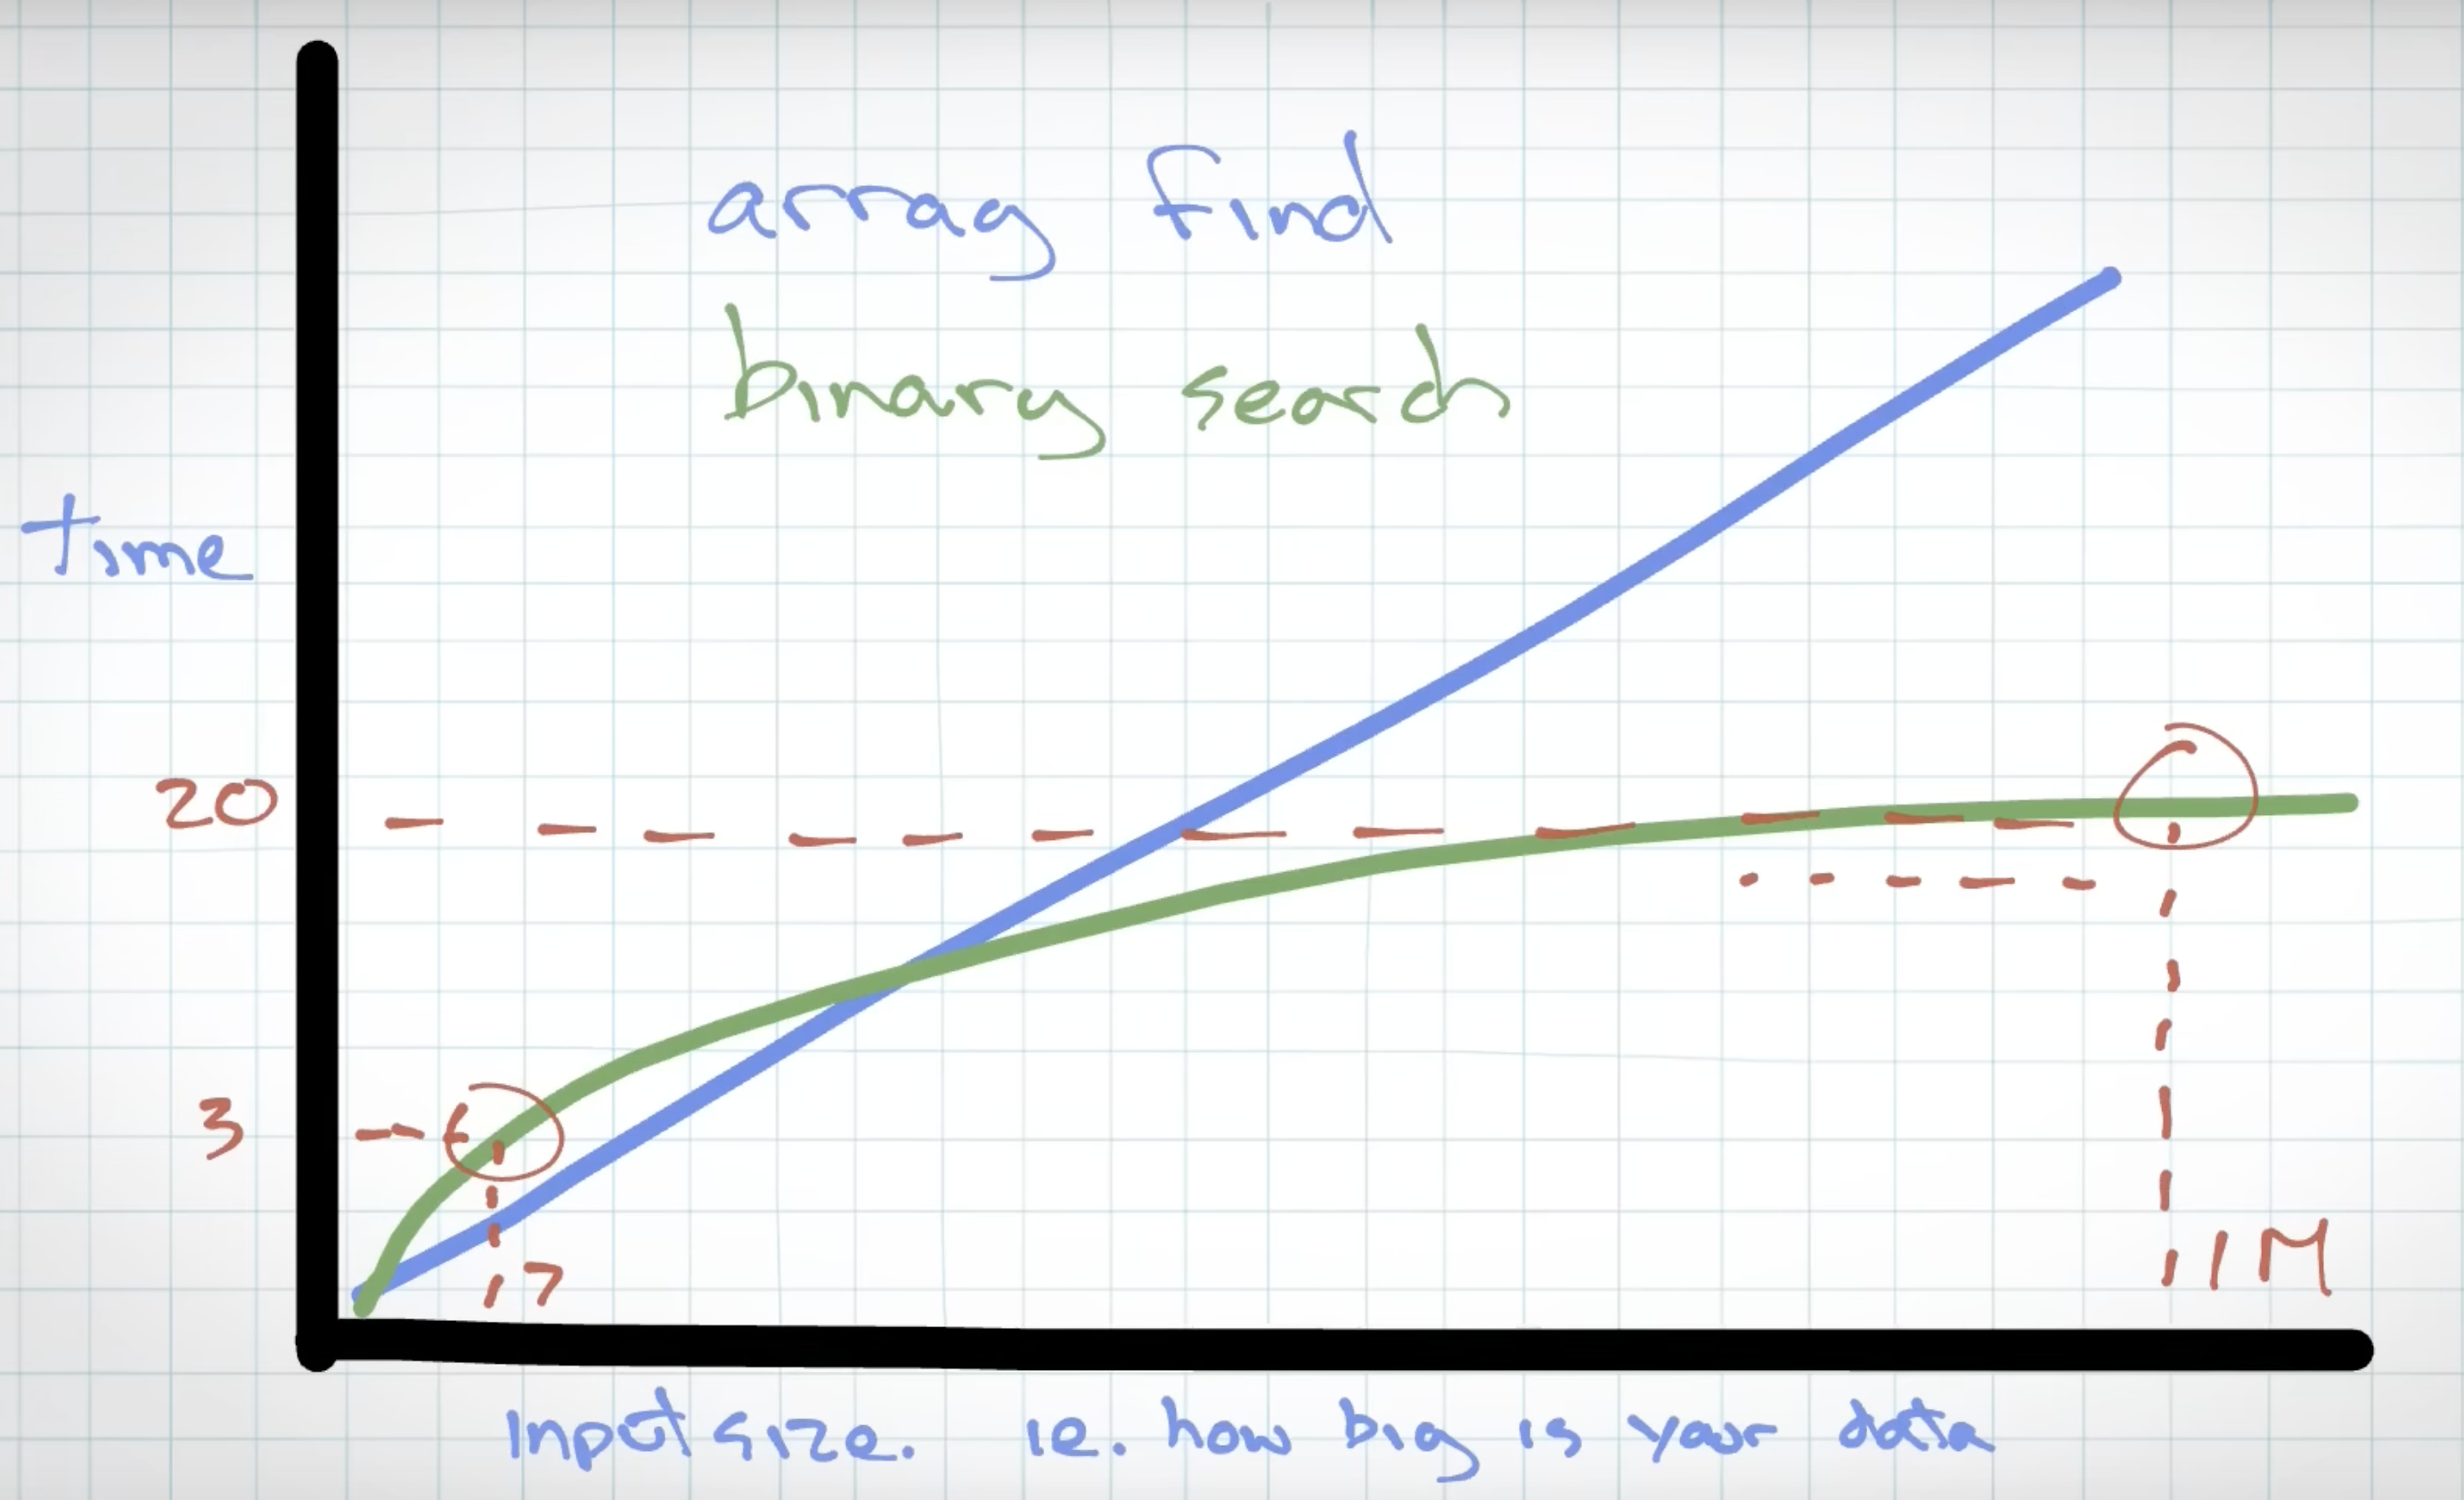 array find
binary search
time
20
3
7
1M
Input size. ie. how big is your data